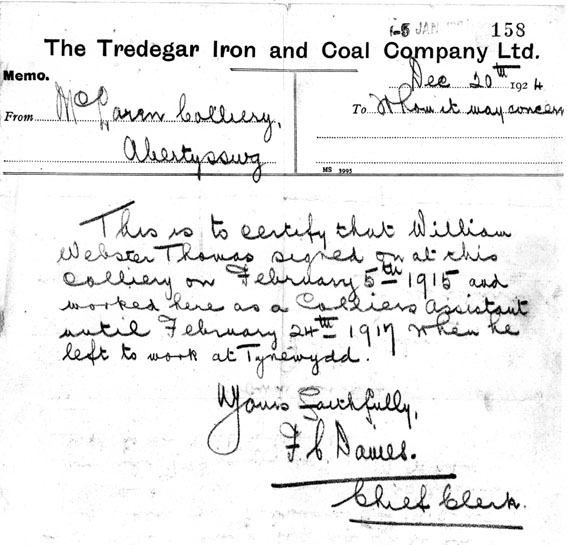 5 JAN
158
The Tredegar Iron and Coal Company Ltd.
Memo.
Dec 20th 1924
From McLaren Colliery,
Abertysswg
To Whom it may concern
MS 3995
This is to certify that William
Webster Thomas signed on at this
Colliery on February 5th 1915 and
worked here as a Colliers Assistant
until February 24th 1917 when he
left to work at Tynewydd.
Yours faithfully,
F. C. Davies.
Chief Clerk.